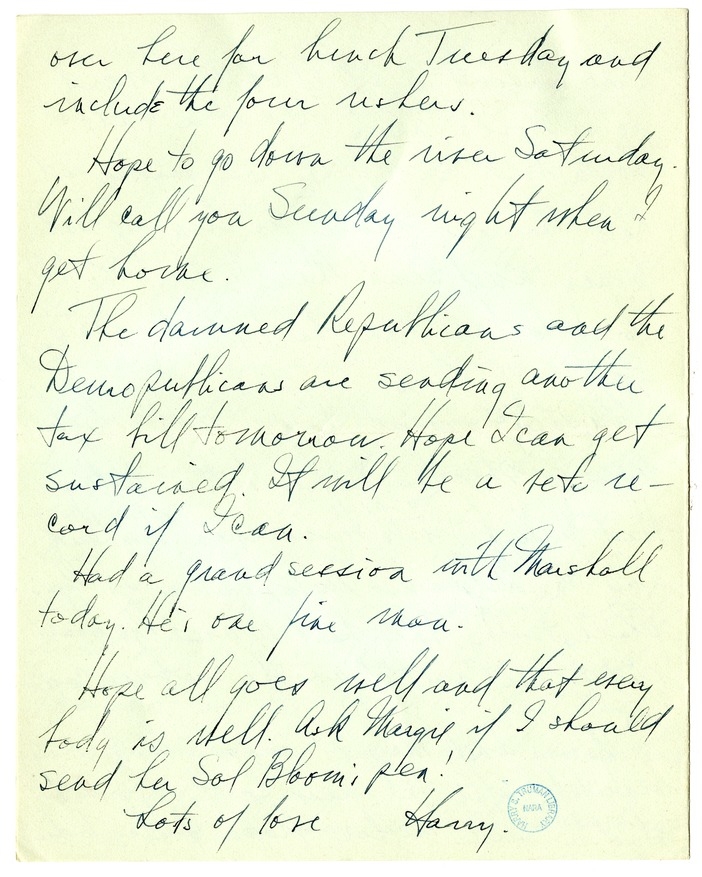 over here for lunch Tuesday and
include the four ushers.
Hope to go down the river Saturday.
Will call you Sunday night when I
get home.
The damned Republicans and the
Demopublicans are sending another
tax bill tomorrow. Hope I can get
sustained. It will be a veto re-
cord if I can.
Had a grand session with Marshall
today. He's one fine man.
Hope all goes well and that every
body is well. Ask Margie if I should
send her Sol Bloom's pen!
Lots of love Harry.
HARRY S. TRUMAN LIBRARY
NARA